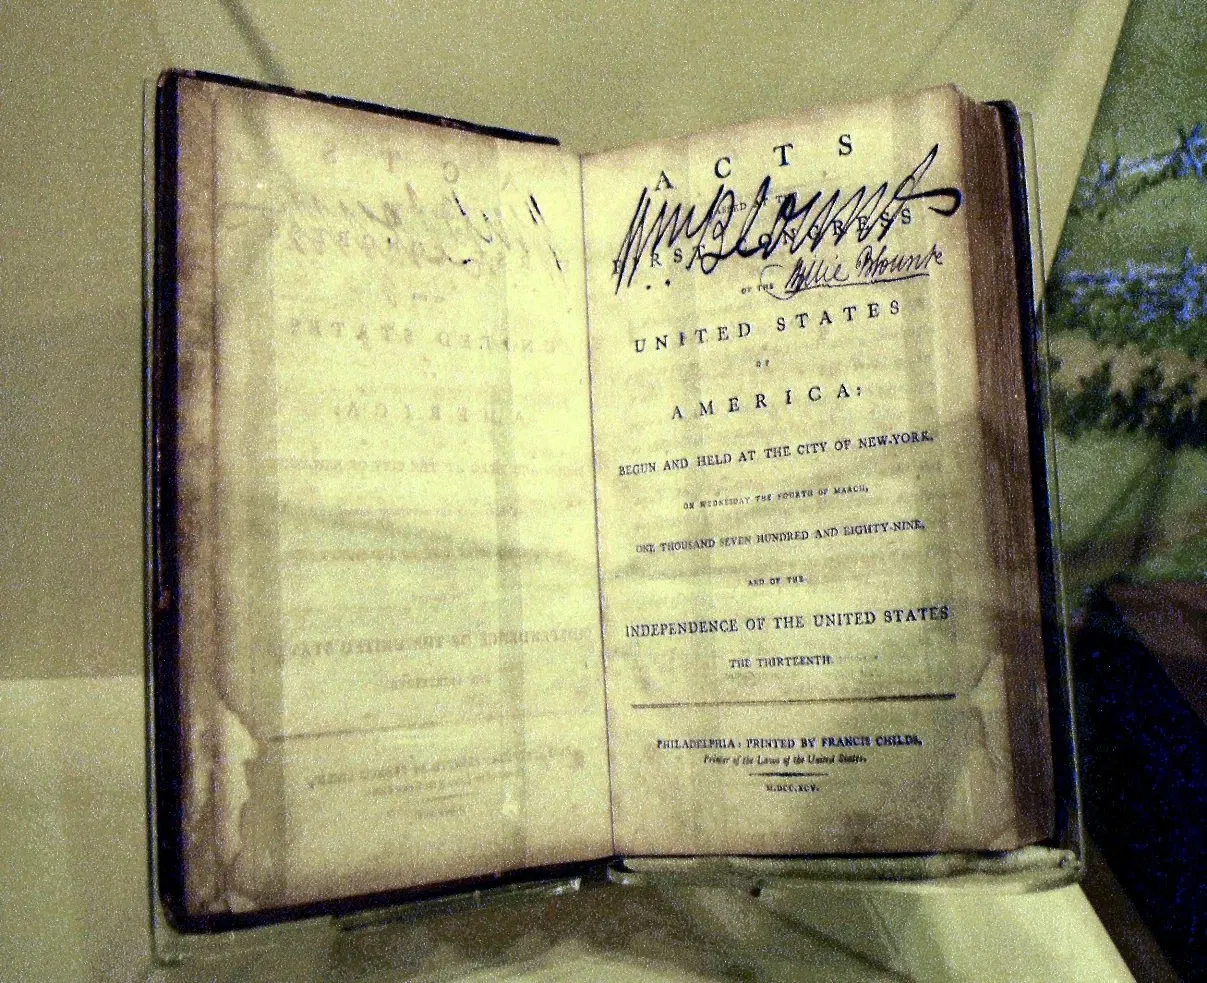 ACTS
PASSED AT THE
Wm Blount
FIRST CONGRESS
OF THE
Willie Blount
UNITED STATES
OF
AMERICA:
BEGUN AND HELD AT THE CITY OF NEW-YORK,
ON WEDNESDAY THE FOURTH OF MARCH,
ONE THOUSAND SEVEN HUNDRED AND EIGHTY-NINE,
AND OF THE
INDEPENDENCE OF THE UNITED STATES
THE THIRTEENTH.
PHILADELPHIA: PRINTED BY FRANCIS CHILDS,
Printer of the Laws of the United States.
M.DCC.XCV.